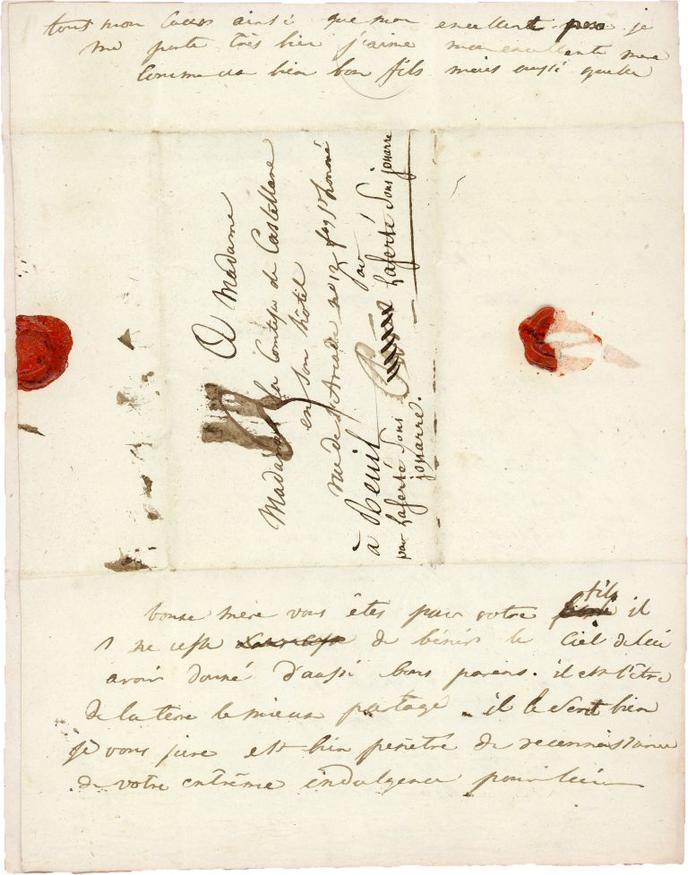 tout mon cœur ainsi que mon excellent père je
me porte très bien j'aime mon excellente mere
Comme un bien bon fils mais aussi quelle
A Madame
Madame la Comtesse de Castellane
en son hôtel
rue de l'Arcade no 12 faug St honoré
par
à Reuil Laferté Sous jouarre
par Laferté Sous
jouarre.
bonne mère vous êtes pour votre fils il
ne cesse de bénir le Ciel de lui
avoir donné d'aussi bons parens. il est l'être
de la terre le mieux partagé. il le Sent bien
je vous jure est bien penétré de reconnaissance
de votre extrême indulgence pour lui